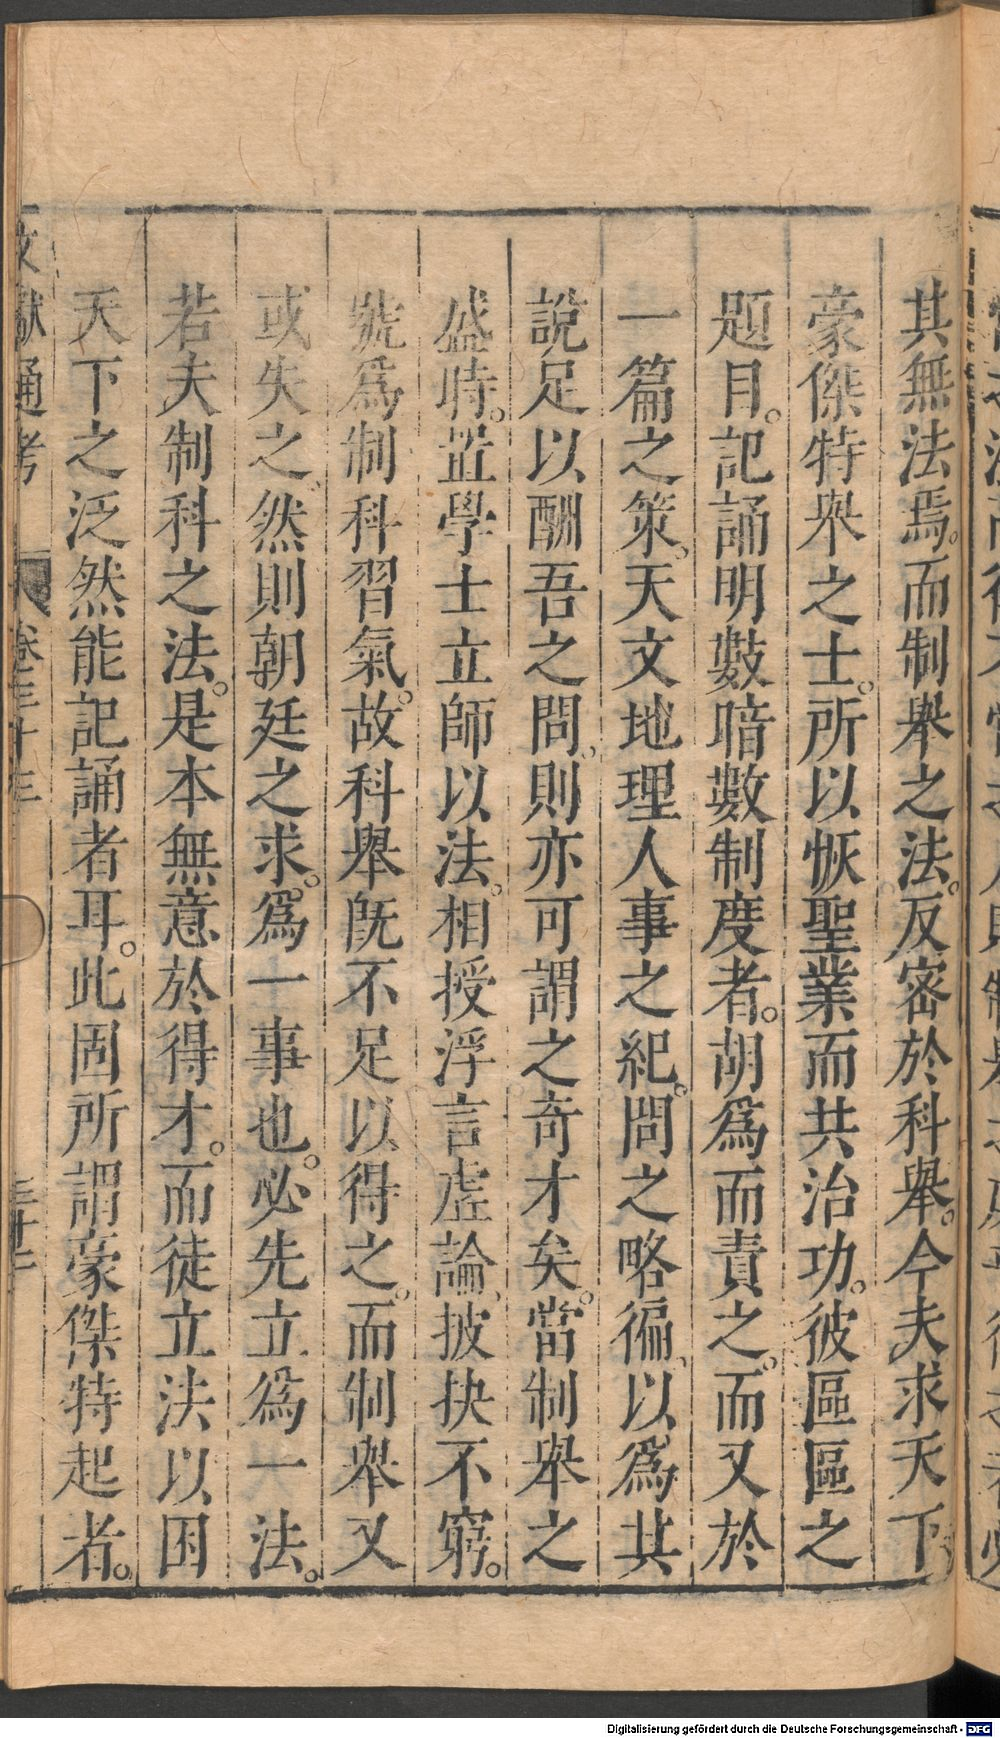 其無法焉。而制舉之法。反密於科舉。今夫求天下
豪傑特舉之士。所以恢聖業而共治功。彼區區之
題目。記誦明數暗數制度者。胡為而責之。而又於
一篇之策。天文地理人事之紀。問之略徧、以為其
說足以酬吾之問、則亦可謂之奇才矣。當制舉之
盛時。置學士立師以法。相授浮言虛論、披抉不窮。
號為制科習氣。故科舉既不足以得之。而制舉又
或失之、然則朝廷之求。為一事也。必先立為一法。
若夫制科之法。是本無意於得才。而徒立法以困
天下之泛然能記誦者耳。此固所謂豪傑特起者。
文獻通考 卷三十三 三十二
Digitalisierung gefördert durch die Deutsche Forschungsgemeinschaft - DFG